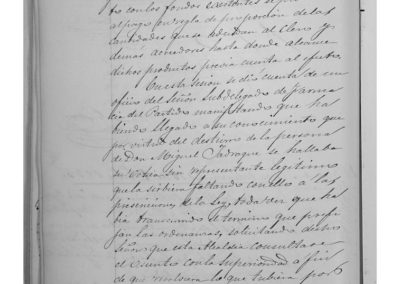 to con los fondos existentes
al pago por regla de proporcion de las
cantidades que se adeudan al Clero y
demás acreedores hasta donde alcance
dichos productos previa cuenta al efecto.
En esta sesion se dió cuenta de un
oficio del Señor Subdelegado de Farma
cia del Partido manifestando que ha
biendo llegado a su conocimiento que
por virtud del destierro de la persona
de Don Miguel se hallaba
su Botica sin representante legitimo
que la sirbiera faltando con ello a las
de la ley toda vez que ha
bia transcurrido el termino que prefi
jan las ordenanzas, solicitando dicho
Señor que esta Alcaldia consultase
el asunto con la superioridad a fin
de que resolviera lo que tubiera por